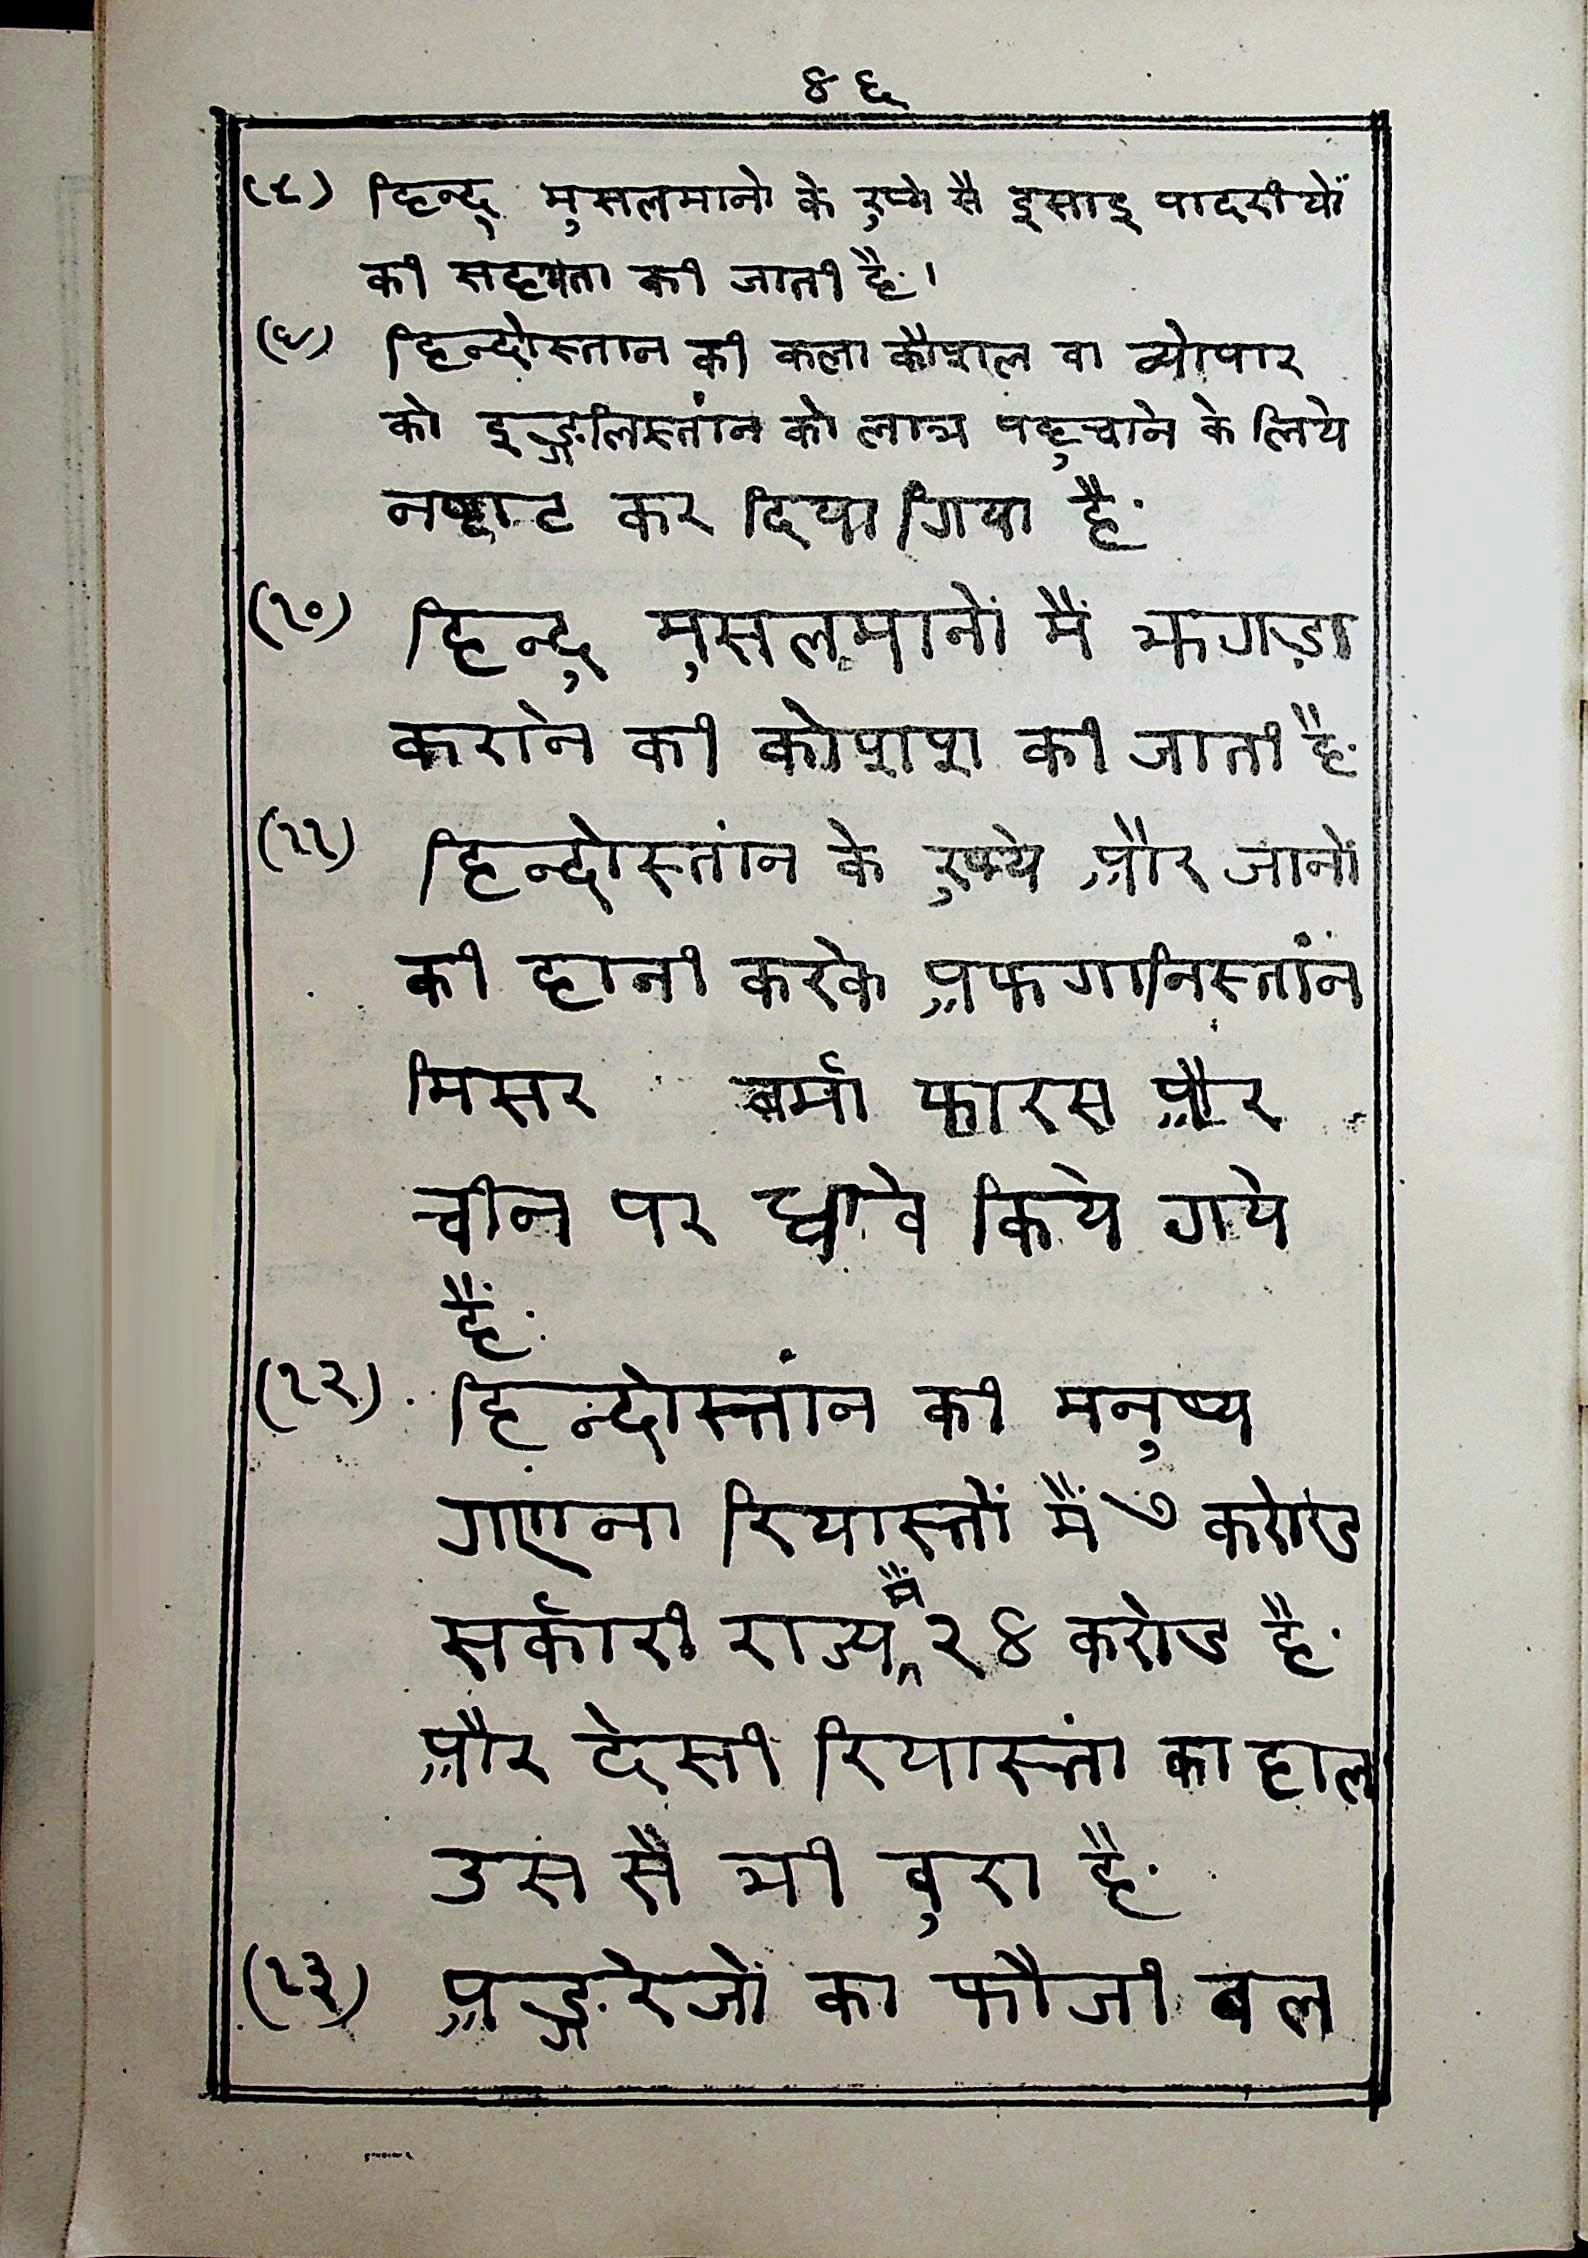 ४६
(८) हिन्दू मुसलमानो के रुप्ये सै इसाइ पादरीयों
की सहायता की जाती है।
(९) हिन्दोस्तान की कला कौशल वा व्योपार
को इङ्गलिस्तांन को लाभ पहुचाने के लिये
नष्ट कर दिया गिया है
(१०) हिन्दु मुसलमानों मैं झगड़ा
कराने की कोशश की जाती है
(११) हिन्दोस्तांन के रुप्ये और जानों
की हानी करके अफगानिस्तांन
मिसर बर्मा फारस और
चीन पर धावे किये गये
हैं
(१२) हिन्दोस्तांन की मनुष्य
गणना रियास्तों मैं ७ करोड
सर्कारी राज्य मैं २४ करोड है
और देसी रियास्तां का हाल
उस सै भी बुरा है
(१३) अङ्गरेजों का फौजी बल